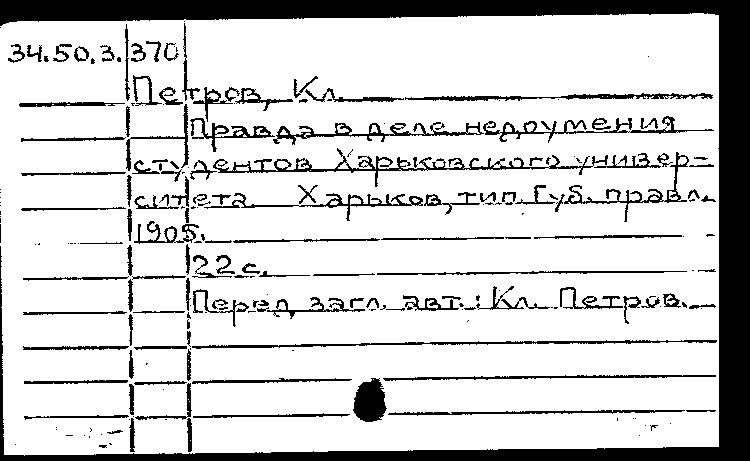 34.50.3.370
Петров, Кл.
Правда в деле недоумения
студентов Харьковского универ-
ситета. Харьков, тип. Губ. правл.
1905.
22 с.
Перед загл. авт.: Кл. Петров.